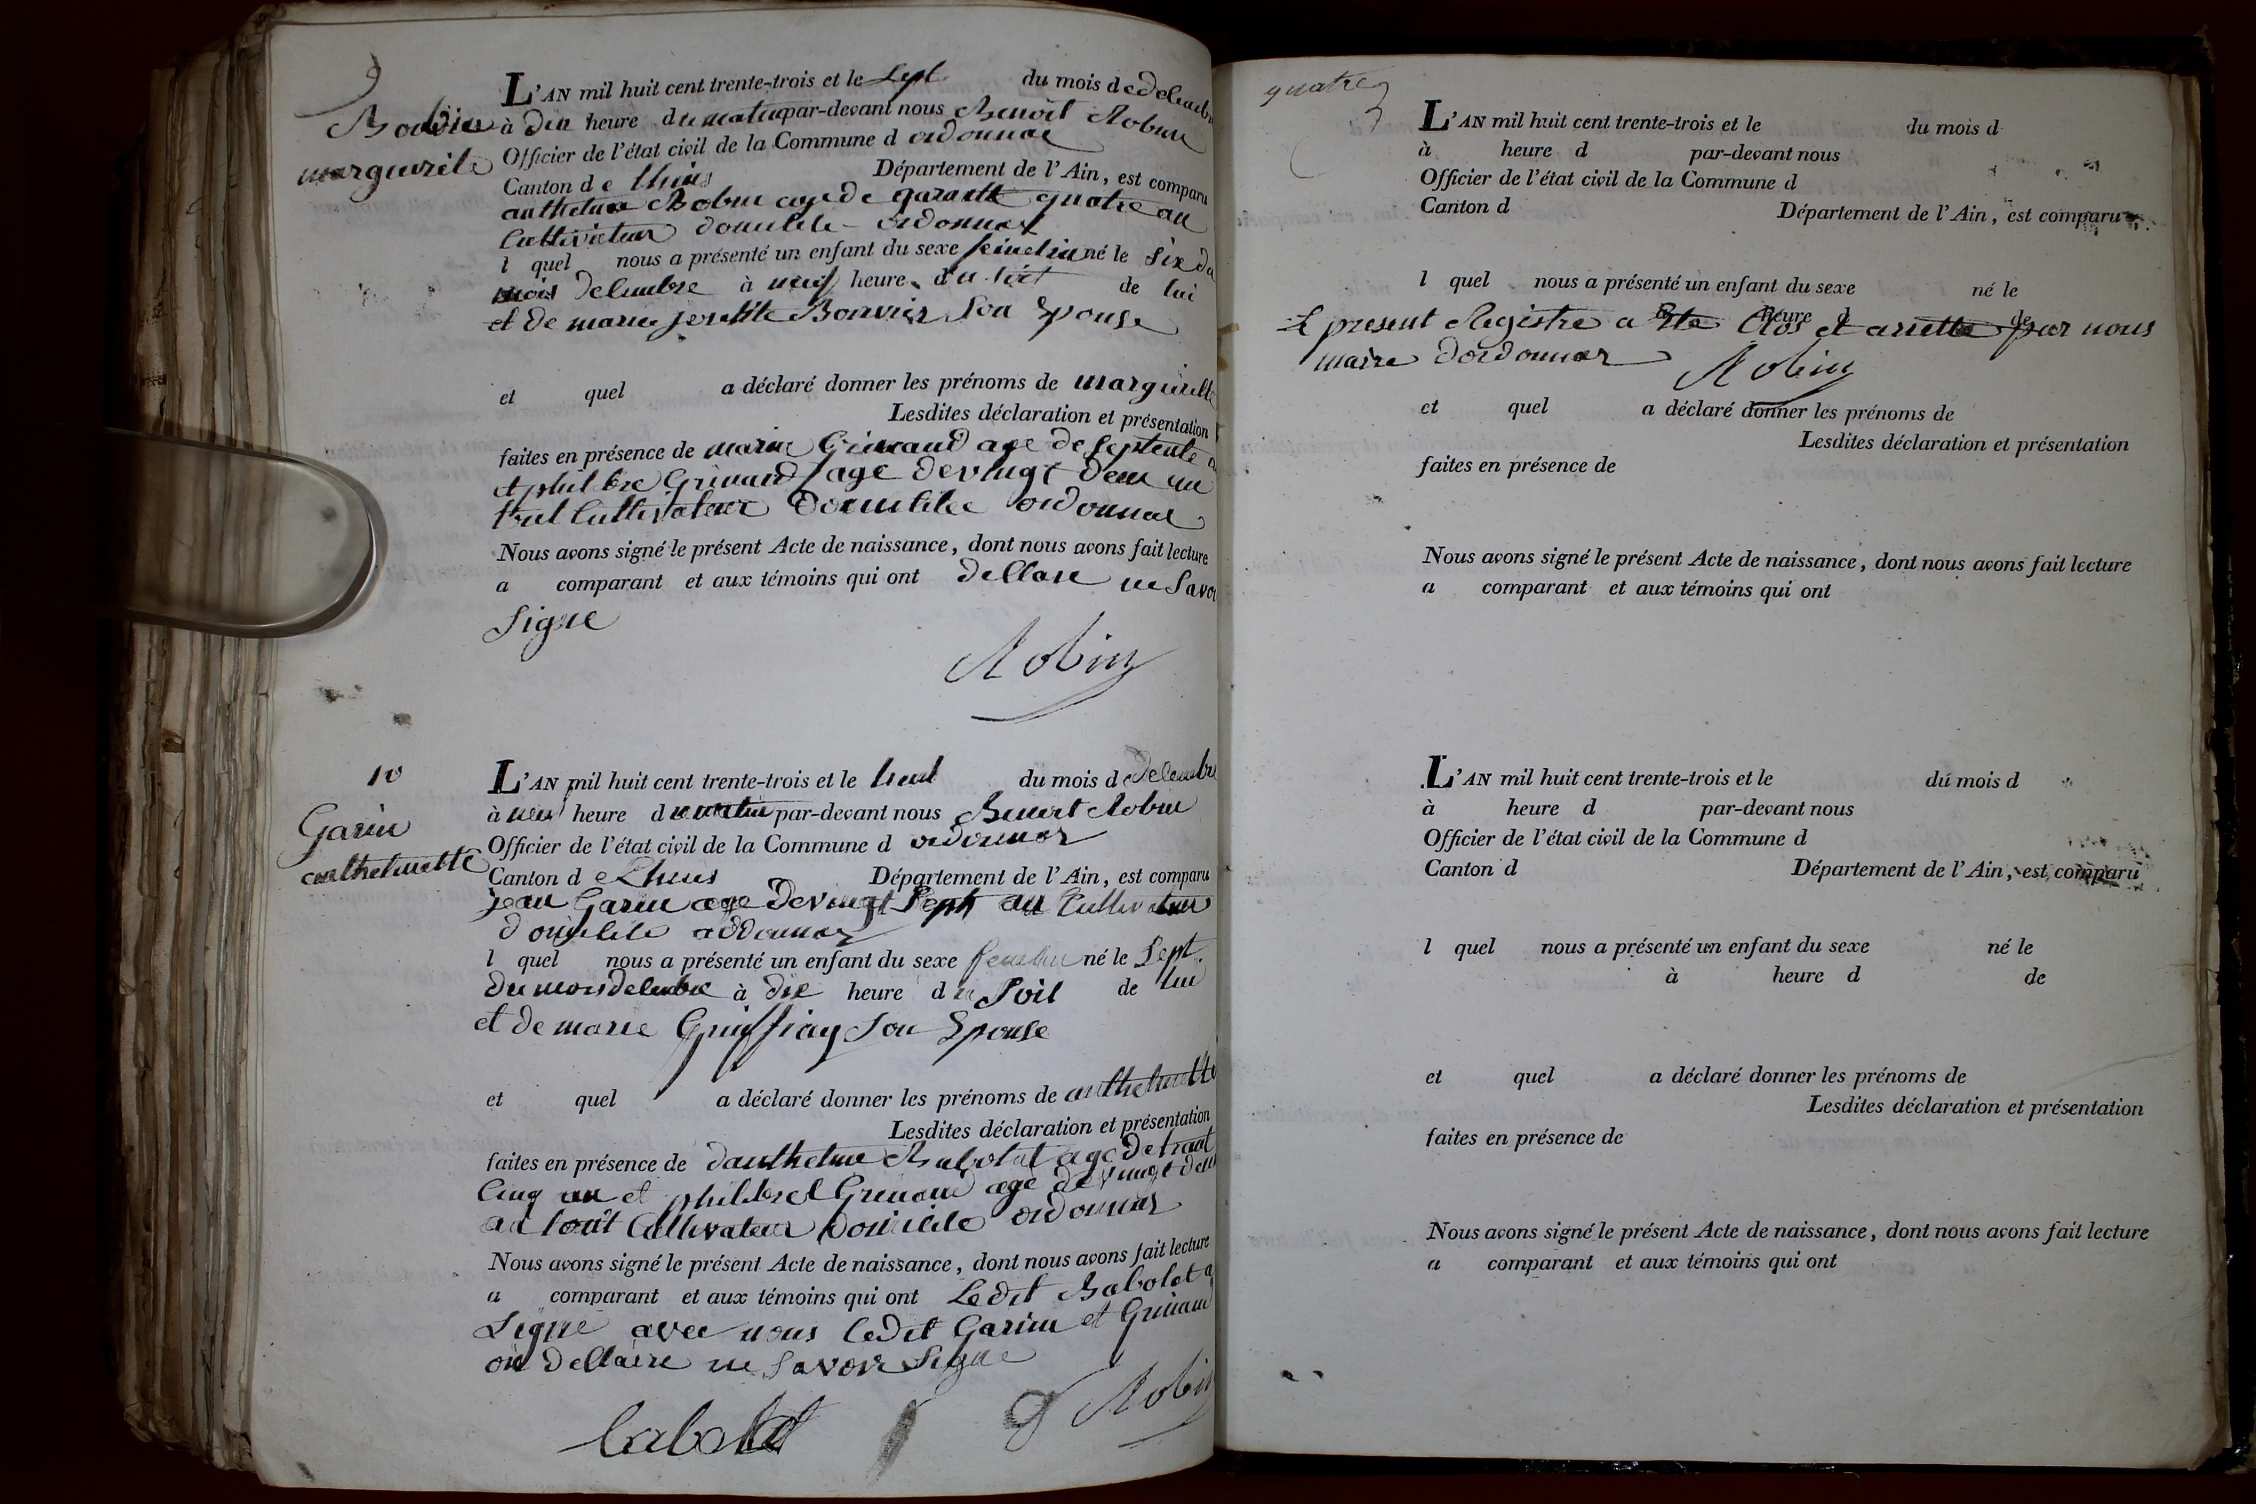 9
marguerite
L'AN mil huit cent trente-trois et le sept du mois de decembre
à dix heure du matin par-devant nous Benoit Robin
Officier de l'état civil de la Commune d ordonnaz
Canton de lhuis Département de l'Ain, est comparu
anthelme age de quatre an
Cultivateur domicile ordonnaz
l quel nous a présenté un enfant du sexe feminin né le six du
mois decembre à neuf heure du soir de lui
et de marie Bonvier son Epouse
et quel a déclaré donner les prénoms de marguerite
Lesdites déclaration et présentation
faites en présence de Grinand age de septente
et philibre Grinand age de vingt deux an
tout Cultivateur domicilie ordonnaz
Nous avons signé le présent Acte de naissance, dont nous avons fait lecture
a comparant et aux témoins qui ont dellare ne savoir
signe
Robin
10
Garin
anthelmette
L'AN mil huit cent trente-trois et le huit du mois d decembre
à neuf heure du matin par-devant nous Benoit Robin
Officier de l'état civil de la Commune d ordonnaz
Canton de Lhuis Département de l'Ain, est comparu
jean Garin age de vingt sept an Cultivateur
domicile ordonnaz
l quel nous a présenté un enfant du sexe feminin né le sept
du mois decembre à dix heure du soir de lui
et de marie son Epouse
et quel a déclaré donner les prénoms de anthelmette
Lesdites déclaration et présentation
faites en présence de danthelme Babolat age de trant
Cinq an et philibret Grinand age de vingt deux
an tout Cultivateur domicile ordonnaz
Nous avons signé le présent Acte de naissance, dont nous avons fait lecture
a comparant et aux témoins qui ont Ledit Babolat a
signe avec nous ledit Garin et Grinand
on dellaire ne savoir signe
babolat
Robin
quatre
L'AN mil huit cent trente-trois et le du mois d
à heure d par-devant nous
Officier de l'état civil de la Commune d
Canton d Département de l'Ain, est comparu
l quel nous a présenté un enfant du sexe né le
heure d de
Le present Registre a Ete Clos et arrette par nous
maire dordonnaz Robin
et quel a déclaré donner les prénoms de
Lesdites déclaration et présentation
faites en présence de
Nous avons signé le présent Acte de naissance, dont nous avons fait lecture
a comparant et aux témoins qui ont
L'AN mil huit cent trente-trois et le du mois d
à heure d par-devant nous
Officier de l'état civil de la Commune d
Canton d Département de l'Ain, est comparu
l quel nous a présenté un enfant du sexe né le
à heure d de
et quel a déclaré donner les prénoms de
Lesdites déclaration et présentation
faites en présence de
Nous avons signé le présent Acte de naissance, dont nous avons fait lecture
a comparant et aux témoins qui ont